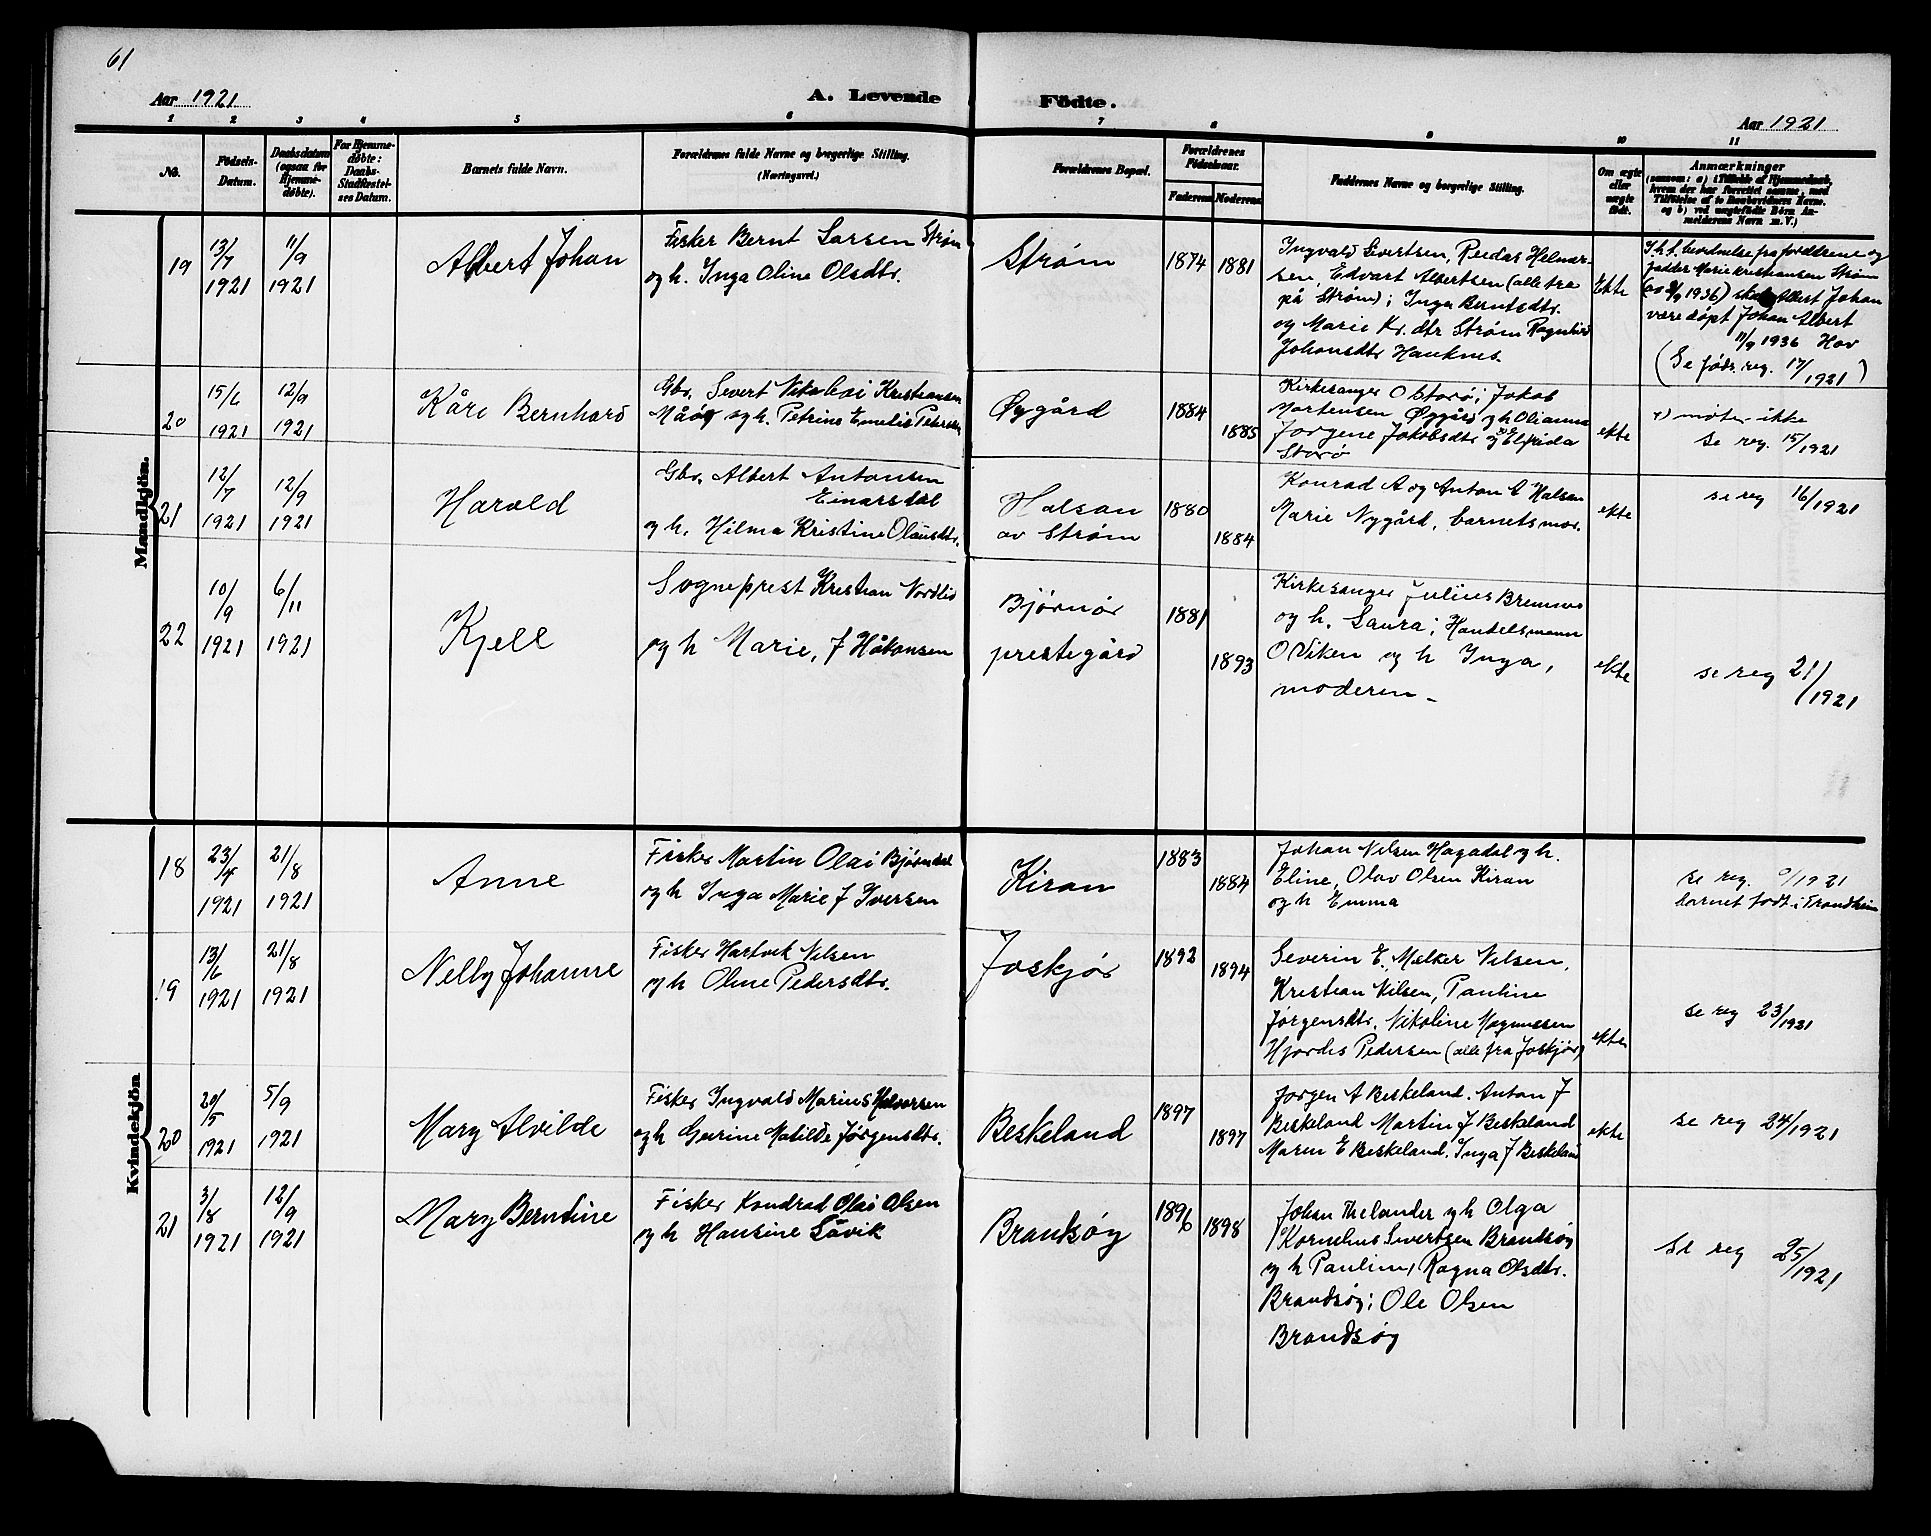 61
Aar 1921
A. Levende
Födte.
Aar 1921
1 2 3 4 5 6 7 8 9 10 11
No.
Fødsels-
Datum.
Daabsdatum
(ogsaa for
Hjemme-
døbte).
For Hjemme-
døbte:
Daabs-
Stadfæstel-
ses Datum.
Barnets fulde Navn.
Forældrenes fulde Navne og borgerlige Stilling.
(Næringsvei.)
Forældrenes Bopæl.
Forældrenes
Fødselsaar.
Faderens
Moderens
Faddernes Navne og borgerlige Stilling.
Om ægte
eller
uægte
født.
Anmærkninger
Mandkjön.
19
13/7
1921
11/9
1921
Albert Johan
Fisker Bernt Larsen Strøm
og h. Inga Oline Olsdtr.
Strøm
1874
1881
Ingvald Sivertsen, Reidar Helmer-
sen, Edvart Albertsen (alle fra
på Strøm); Inga Berntsdtr.
og Marie Kr. dtr Strøm Ragnhild
Johansdtr Hauknes.
Ekte
I h. t. bevidnelse fra foreldrene og
fadder Marie Kristiansen Strøm
1936) skal Albert Johan
være døpt Johan Albert
11/9 1936 Hov
(Se føds. reg. 17/1921)
20
15/6
1921
12/9
1921
Kåre Bernhard
Gbr. Severt Nikolai Kristiansen
Måøy og h. Petrine Emelie Petersen
Øygård
1884
1885
Kirkesanger O Storø; Jakob
Mortensen Øygård og h Olianna
Jørgene Jakobsdtr og Elfrida
Storø
ekte
møter ikke
se reg. 15/1921
21
12/7
1921
12/9
1921
Harald
Gbr. Albert Antonsen
Einarsdal
og h. Hilma Kristine Olausdtr.
Halsan
av Strøm
1880
1884
Konrad A og Anton A Halsan
Marie Nygård, barnets mor.
ekte
se reg 16/1921
22
10/9
1921
6/11
1921
Kjell
Sogneprest Kristian Nordlid
og h Marie, f Håkonsen
Bjørnør
prestegård
1881
1893
Kirkesanger Julius Bremnes
og h. Laura; Handelsmann
O Viken og h Inga,
moderen –
ekte
se reg 21/1921
Kvindekjön
18
23/4
1921
21/8
1921
Anne
Fisker Martin Olai Bjørndal
og h Inga Marie f Iversen
Kiran
1883
1884
Johan Nilsen Hagadal og h.
Eline, Olav Olsen Kiran
og h Emma
se reg. 0/1921
barnet født i Trondheim
19
13/6
1921
21/8
1921
Nelly Johanne
Fisker Hartvik Nilsen
og h Oline Pedersdtr.
Joskjør
1892
1894
Severin E. Melker Nilsen,
Kristian Nilsen, Pauline
Jørgensdtr. Nikoline Magnussen
Hjordis Pedersen (alle fra Joskjør)
ekte
se reg 23/1921
20
20/5
1921
5/9
1921
Mary Alvilde
Fisker Ingvald Marius Halvorsen
og h Gurine Matilde Jørgensdtr.
Beskeland
1897
1897
Jørgen A Beskeland. Anton J
Beskeland Martin J Beskeland
Maren E Beskeland. Inga J Beskeland
ekte
se reg 24/1921
21
3/8
1921
12/9
1921
Mary Berndine
Fisker Kondrad Olai Olsen
og h Hansine Såvik
Brandsøy
1896
1898
Johan Thelander og h Olga
Kornelius Sivertsen Brandsøy
og h Pauline, Ragna Olsdtr.
Brandsøy; Ole Olsen
Brandsøy
Se reg 25/1921